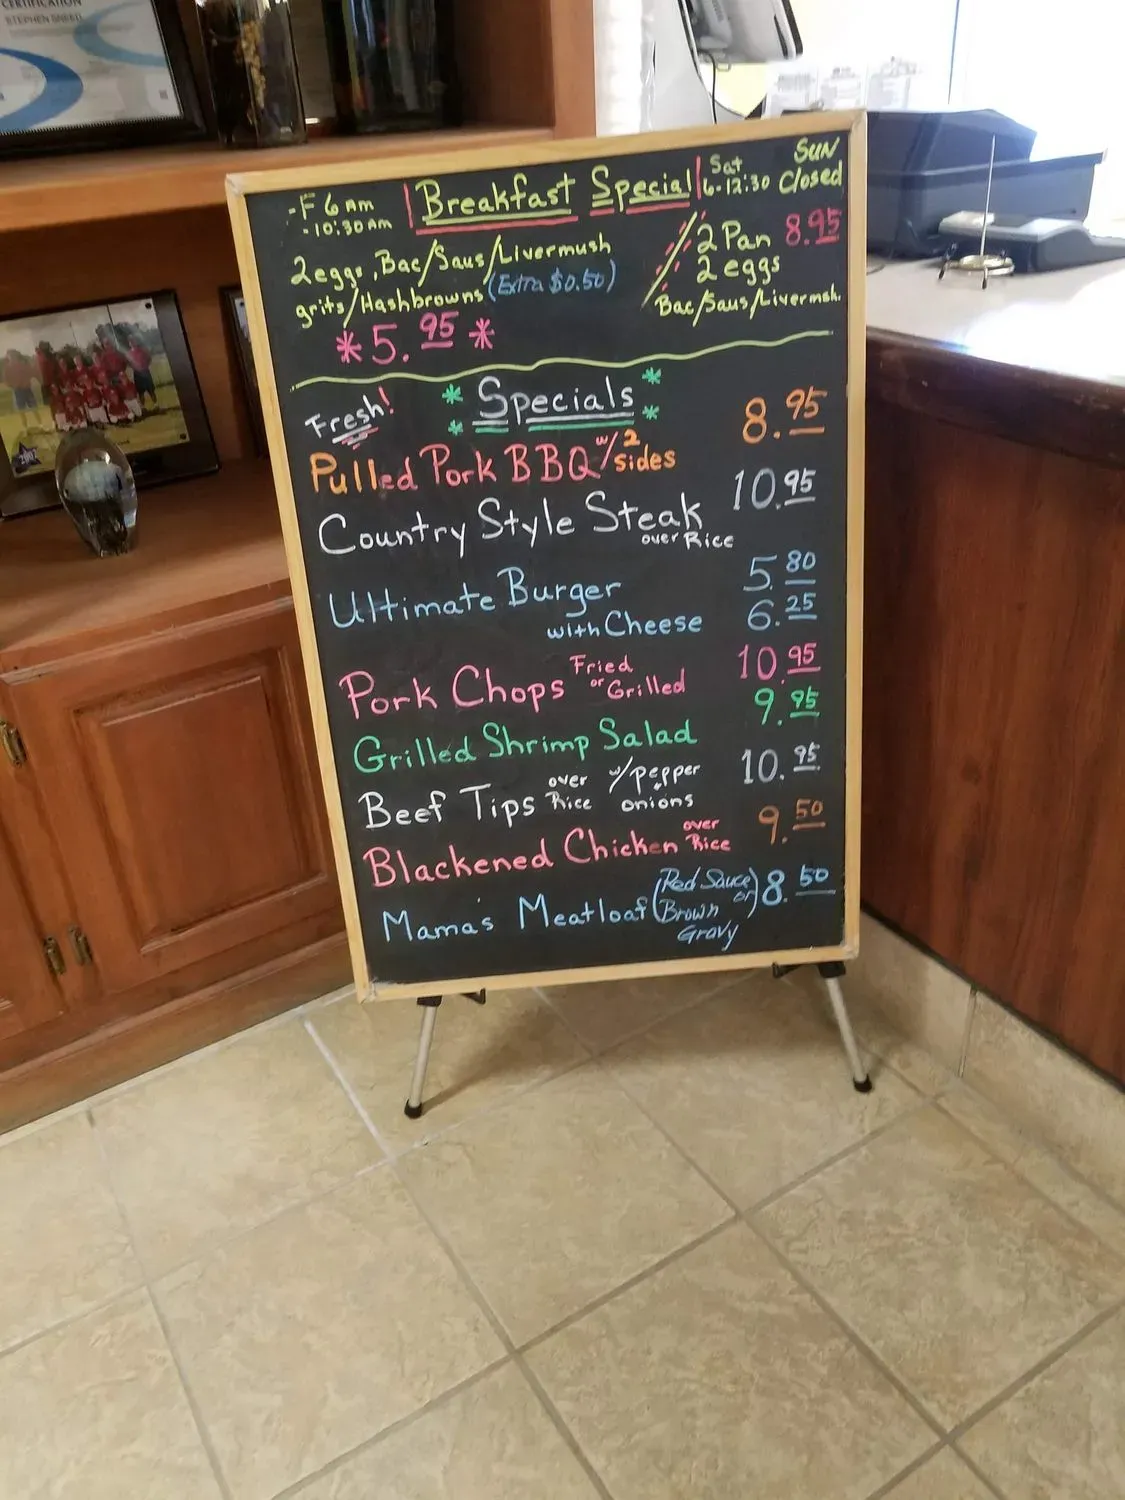 CERTIFICATION
STEPHEN SNEED
2007
-F 6 AM
-10:30 AM
Breakfast Special
Sat
6-12:30
SUN
Closed
2 eggs, Bac/Saus/Livermush
grits/Hashbrowns (Extra $0.50)
*5.95*
2 Pan 8.95
2 eggs
Bac/Saus/Livermsh.
Fresh!
* Specials *
* *
Pulled Pork BBQ w/2 sides 8.95
Country Style Steak 10.95
over Rice
Ultimate Burger 5.80
with Cheese 6.25
Pork Chops Fried or Grilled 10.95
Grilled Shrimp Salad 9.95
Beef Tips over Rice w/pepper onions 10.95
Blackened Chicken over Rice 9.50
Mama's Meatloaf (Red Sauce or Brown Gravy) 8.50